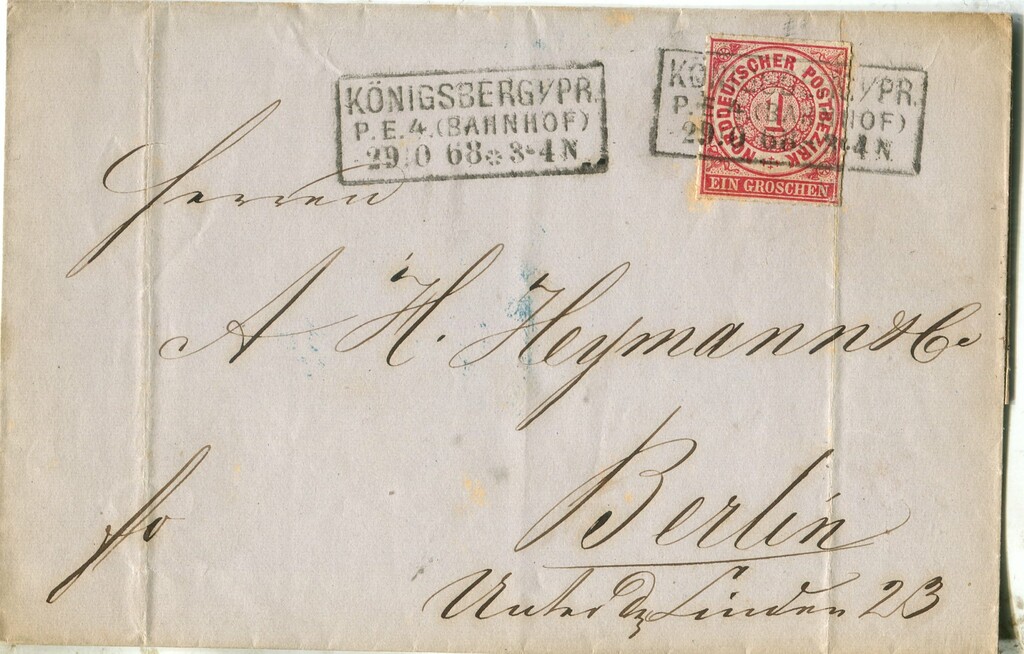 KÖNIGSBERG I/PR.
P.E.4.(BAHNHOF)
29 10 68 ✻ 3-4 N
KÖ I/PR.
P.E. (BAHNHOF)
29 10 68 3-4 N
NORDDEUTSCHER POSTBEZIRK
1
EIN GROSCHEN
Herren
A H. Heymann & Co
Berlin
fo
Unter d Linden 23